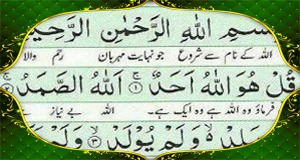 بِسْمِ اللّٰهِ الرَّحْمٰنِ الرَّحِيْمِ
اللہ کے نام سے شروع جو نہایت مہربان رحم والا
قُلْ هُوَ اللّٰهُ اَحَدٌ ۝۱ اَللّٰهُ الصَّمَدُ ۝۲
فرماؤ وہ اللہ ہے وہ ایک ہے۔ اللہ بے نیاز
يَلِدْ ۙ وَلَمْ يُوْلَدْ ۝۳ وَلَمْ